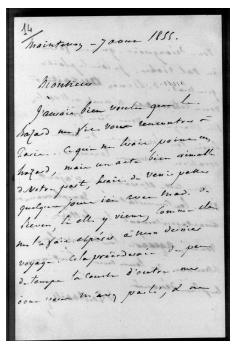 14
Maintenon – 7 aout 1855.
Monsieur
J'aurais bien voulu que le
hazard me fit vous rencontrer à
Paris. Ce qui ne sera point un
hazard, mais un acte bien aimable
de votre part, sera de venir passer
quelques jours ici avec mad.
si elle y vient, comme elle
me l'a fait espérer à mon dernier
voyage. Cela précédera de peu
de temps la course d'outre mer
dont vous m'avez parlé, & me